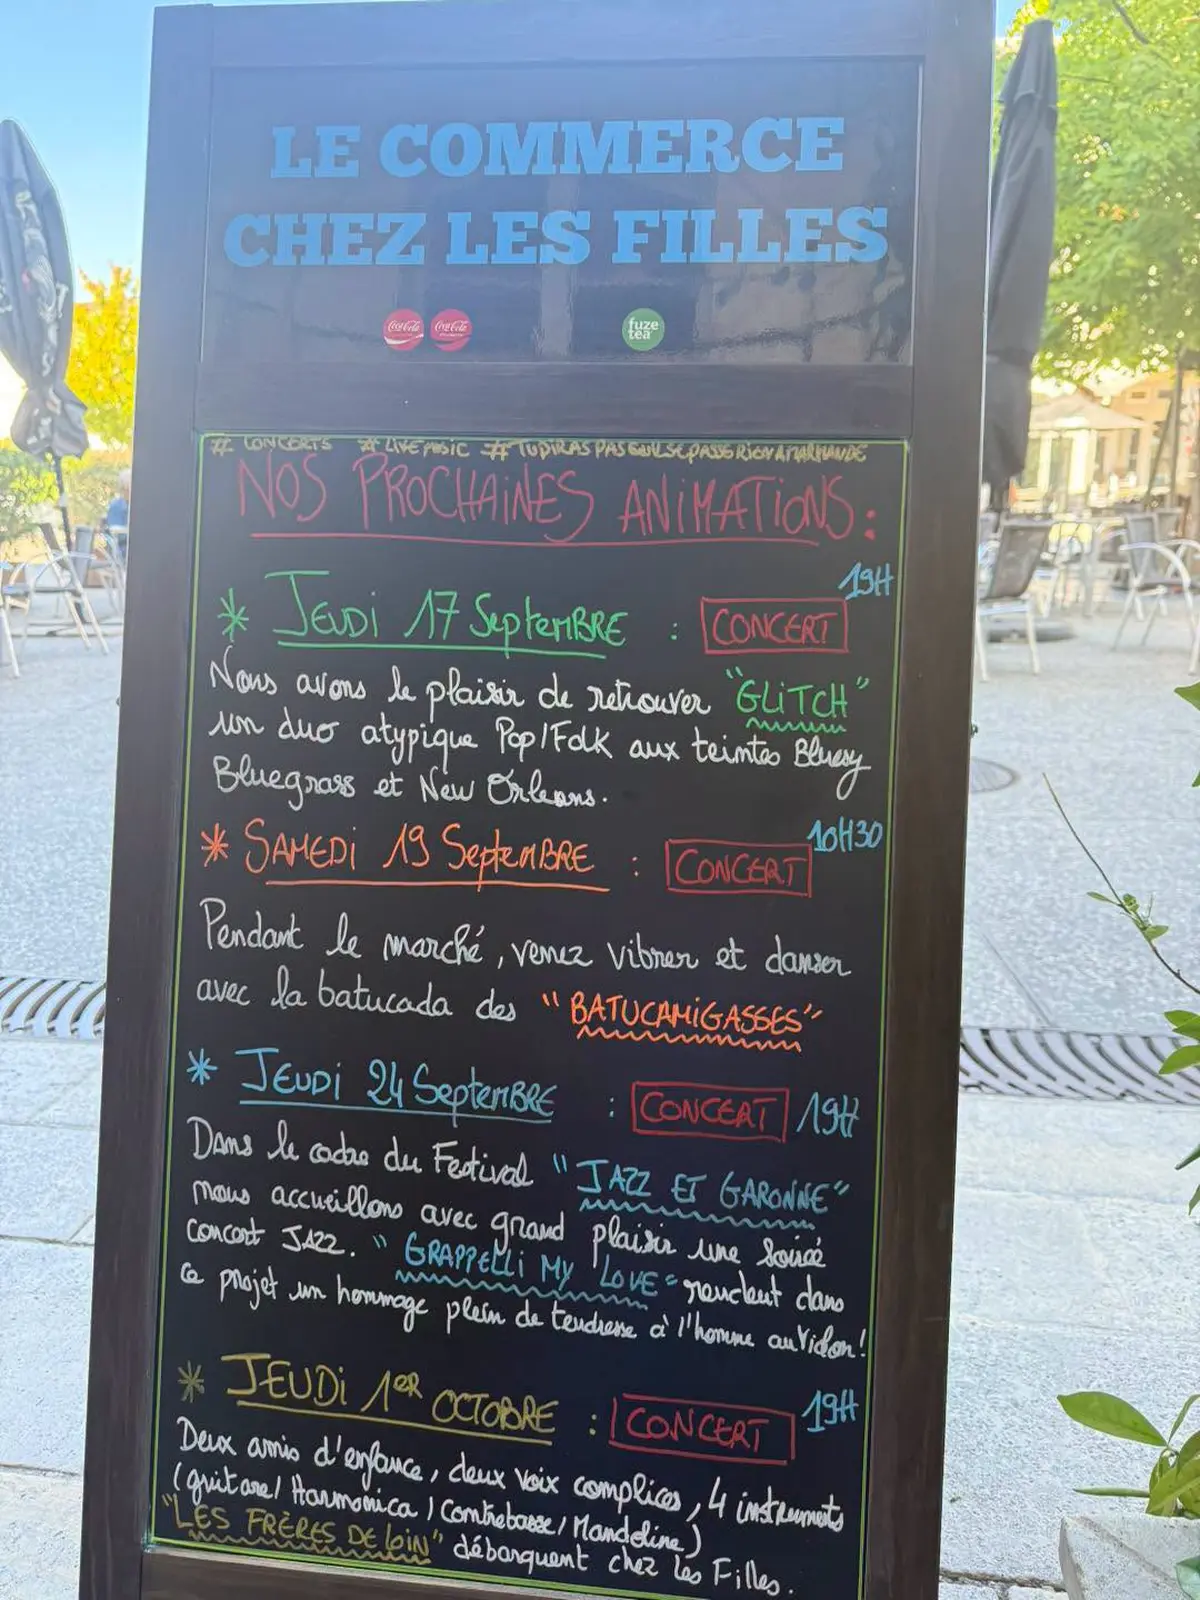 LE COMMERCE
CHEZ LES FILLES
Coca-Cola Coca-Cola fuze tea
# CONCERTS # LIVEMUSIC #TUDIRASPASQU'ILSEPASSERIENAMARMANDE
NOS PROCHAINES ANIMATIONS :
19H
* JEUDI 17 SeptemBRE : CONCERT
Nous avons le plaisir de retrouver "GLITCH"
un duo atypique Pop/Folk aux teintes Bluesy
Bluegrass et New Orleans.
10H30
* SAMEDI 19 SeptemBRE : CONCERT
Pendant le marché, venez vibrer et danser
avec la batucada des "BATUCAMIGASSES"
* JEUDI 24 SeptemBRE : CONCERT 19H
Dans le cadre du Festival "JAZZ ET GARONNE"
nous accueillons avec grand plaisir une soirée
concert JAZZ. "GRAPPELLI MY LOVE" rendent dans
ce projet un hommage plein de tendresse à l'homme au Violon!
19H
* JEUDI 1ER OCTOBRE : CONCERT
Deux amis d'enfance, deux voix complices, 4 instruments
(guitare/ Harmonica / Contrebasse / Mandoline)
"LES FRÈRES DE LOIN" débarquent chez les Filles.